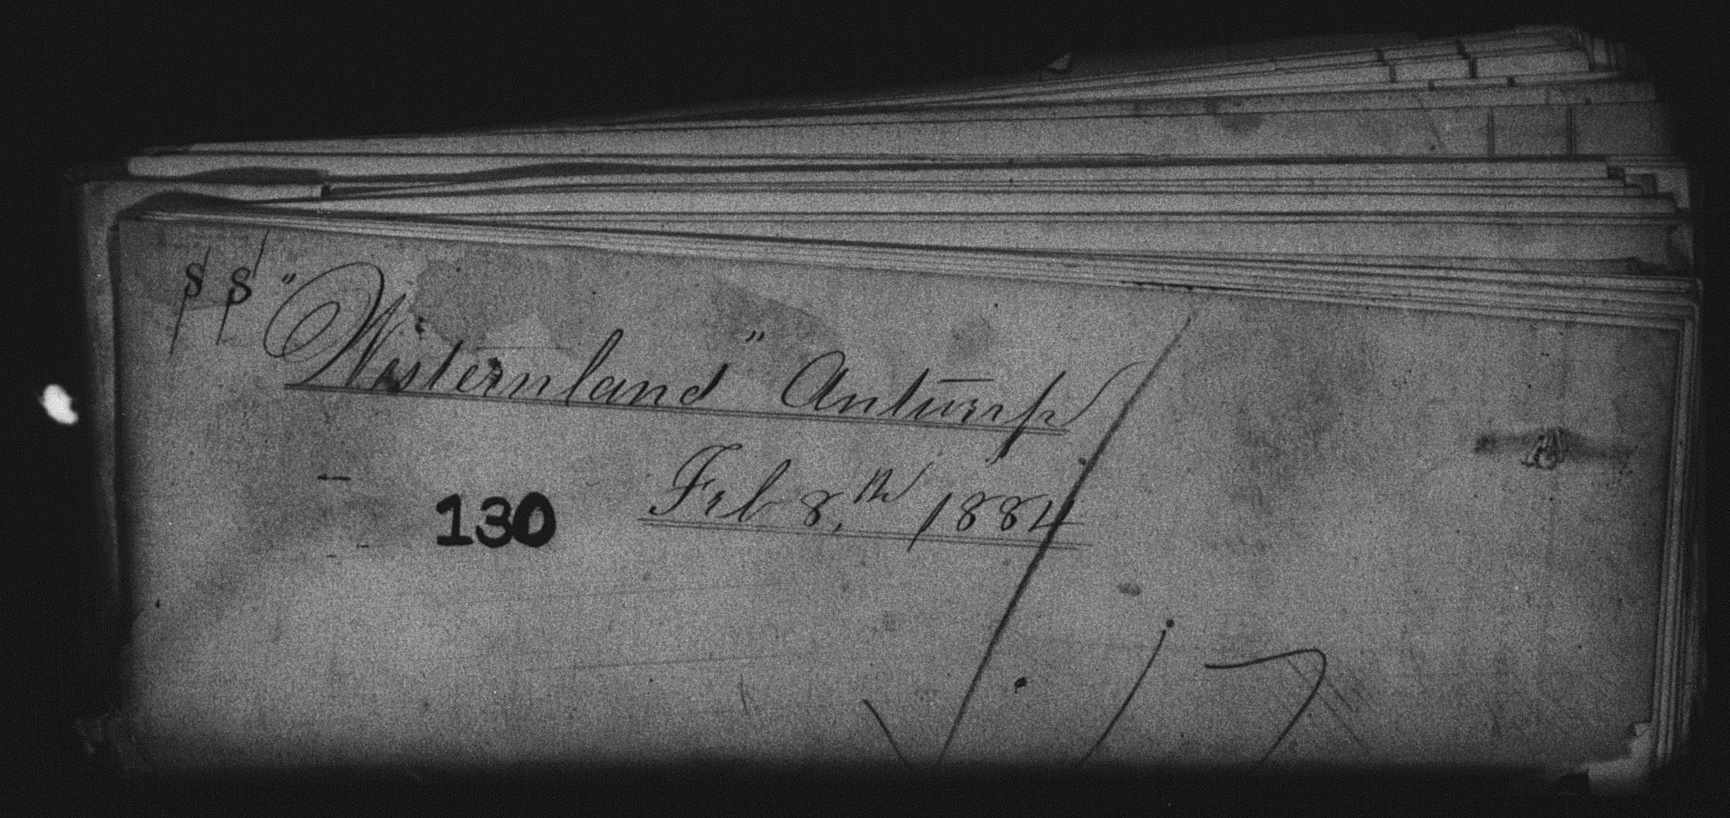 SS "Westernland" Antwerp
130 Feb 8th, 1884
17